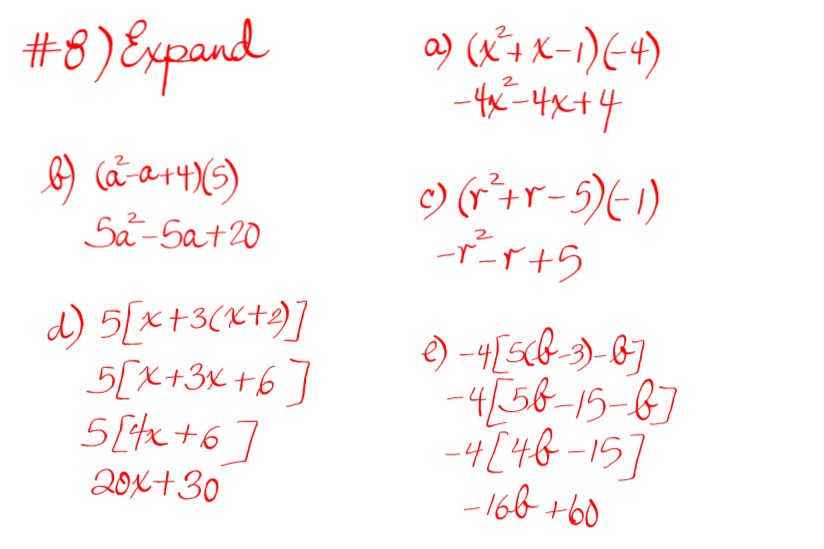 #8) Expand
a) (x²+x-1)(-4)
-4x²-4x+4
b) (a²-a+4)(5)
5a²-5a+20
c) (r²+r-5)(-1)
-r²-r+5
d) 5[x+3(x+2)]
5[x+3x+6]
5[4x+6]
20x+30
e) -4[5(b-3)-b]
-4[5b-15-b]
-4[4b-15]
-16b+60